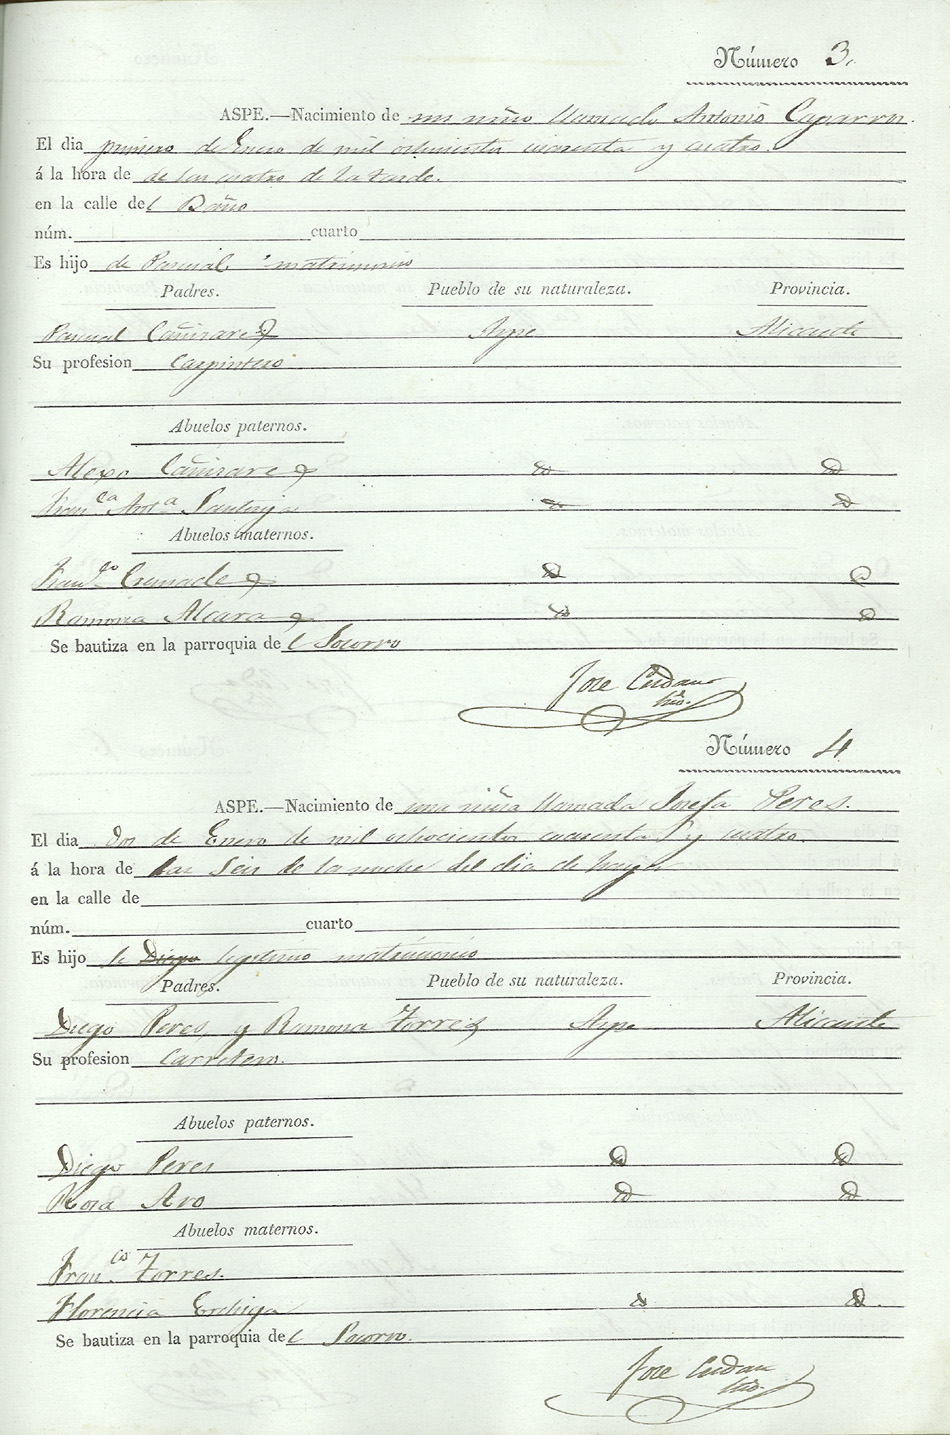 Número 3.
ASPE.—Nacimiento de un niño llamado Antonio
El dia primero de Enero de mil ochocientos cuarenta y cuatro.
á la hora de de las cuatro de la tarde.
en la calle del Baño
núm. cuarto
Es hijo de Pascual matrimonio
Padres. Pueblo de su naturaleza. Provincia.
Pascual Cañizares Aspe Alicante
Su profesion Carpintero
Abuelos paternos.
Cañizares
Franca Anta
Abuelos maternos.
Ramona
Se bautiza en la parroquia del Socorro
Jose
Número 4
ASPE.—Nacimiento de una niña llamada Josefa Peres.
El dia dos de Enero de mil ochocientos cuarenta y cuatro.
á la hora de las Seis de la noche del dia de hoy.
en la calle de
núm. cuarto
Es hijo de Diego legitimo matrimonio
Padres. Pueblo de su naturaleza. Provincia.
Diego Peres y Ramona Torres Aspe Alicante
Su profesion Carretero.
Abuelos paternos.
Diego Peres
Rosa Aro
Abuelos maternos.
Franco Torres.
Florencia
Se bautiza en la parroquia del Socorro.
Jose